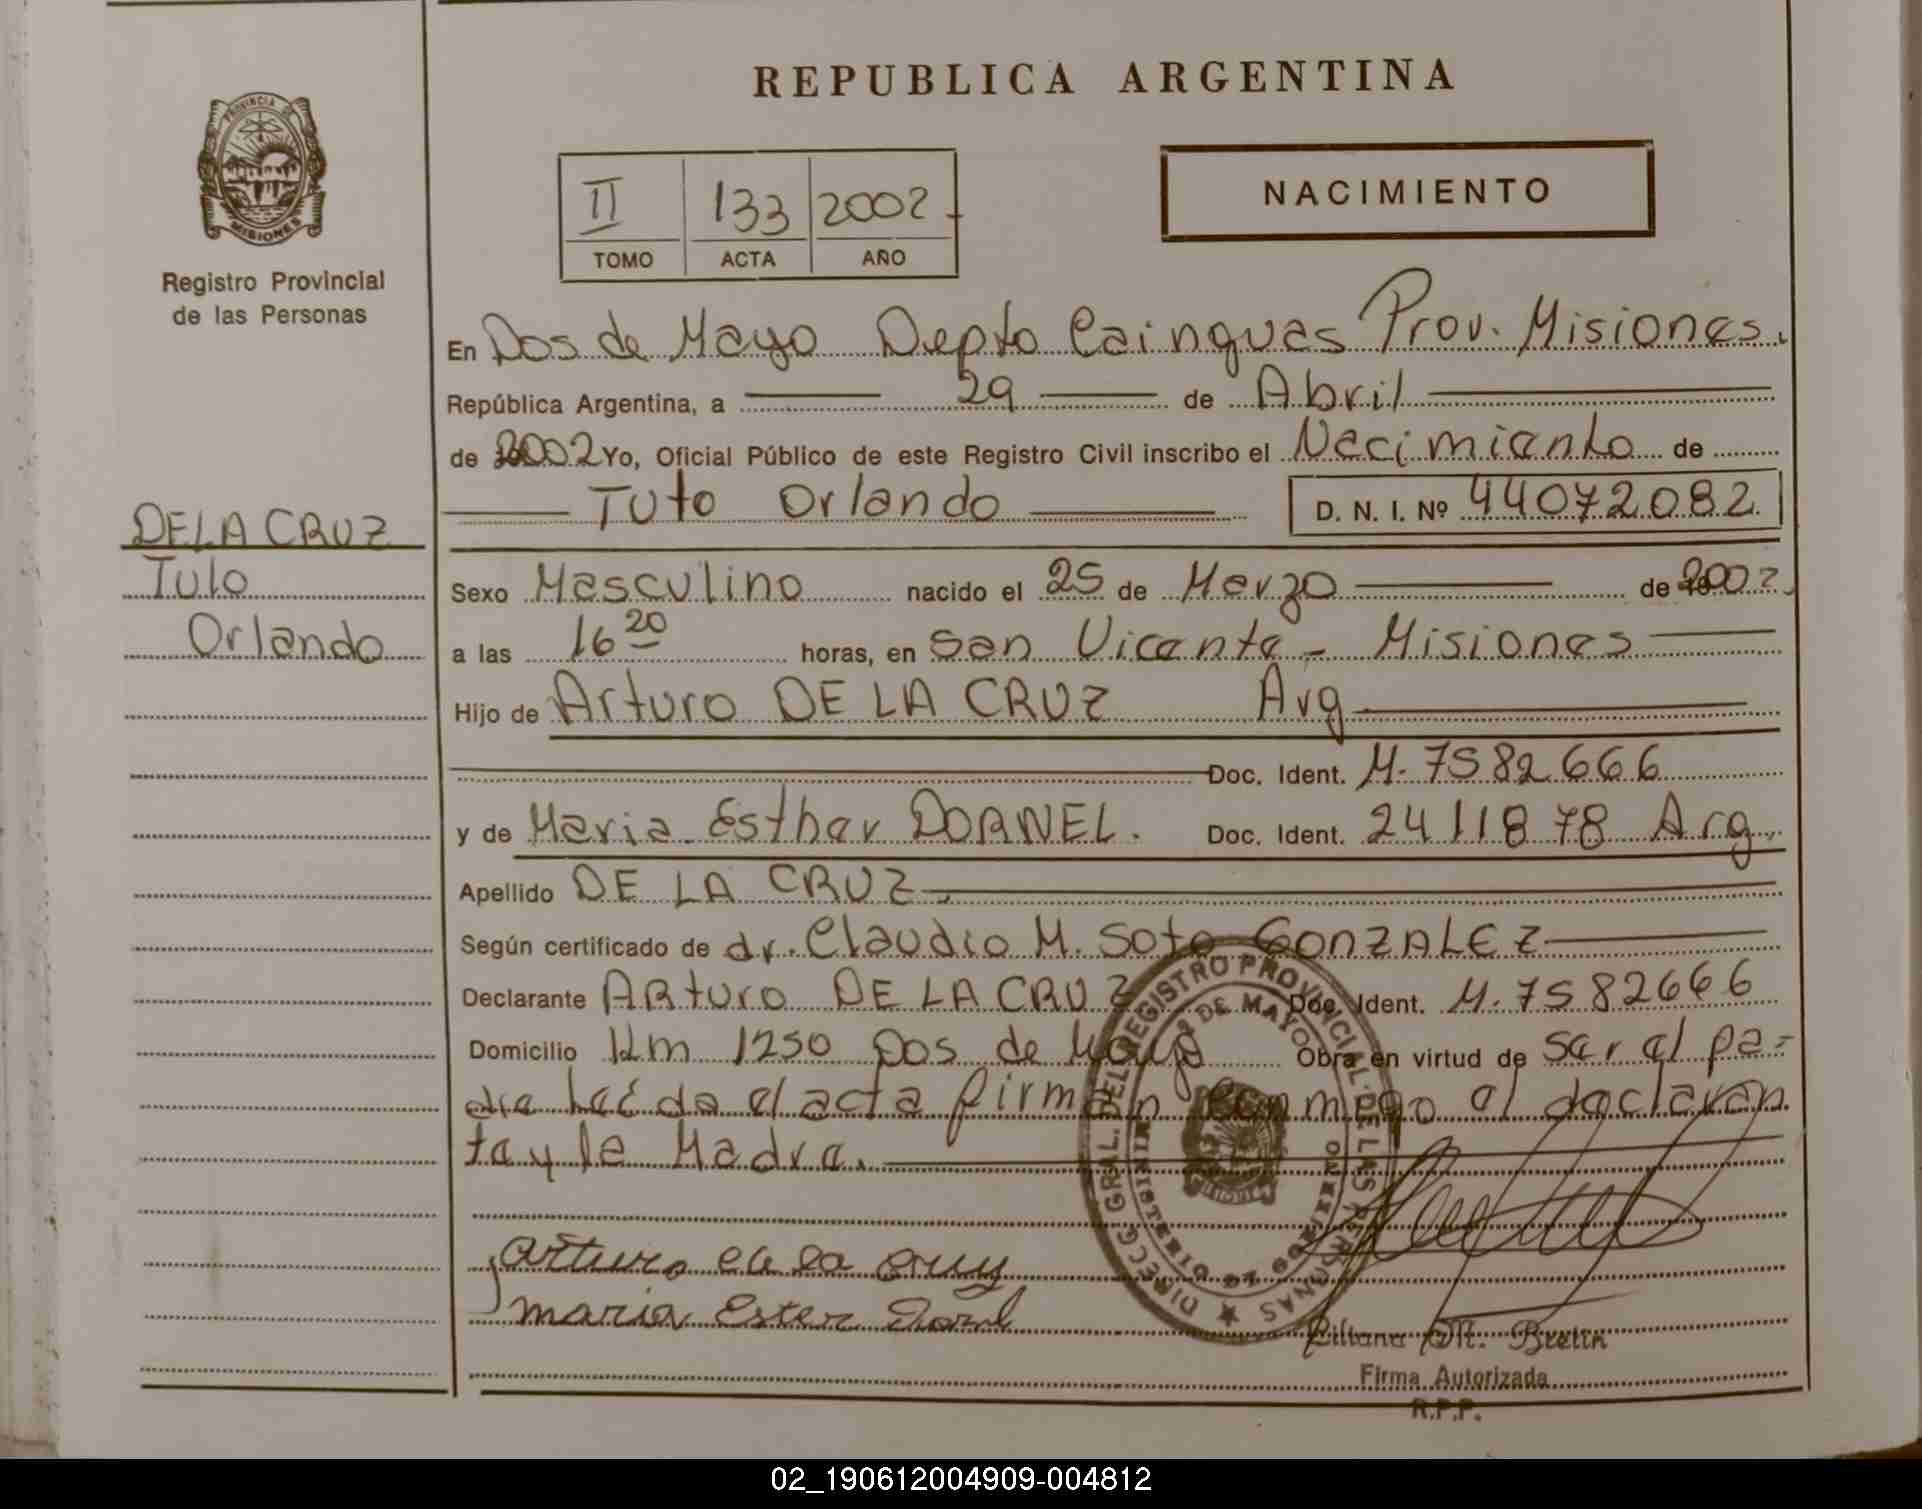 REPUBLICA ARGENTINA
PROVINCIA DE MISIONES
Registro Provincial
de las Personas
II 133 2002
TOMO ACTA AÑO
NACIMIENTO
En Dos de Mayo Depto Cainguas Prov. Misiones.
República Argentina, a 29 de Abril
de 2002 Yo, Oficial Público de este Registro Civil inscribo el Nacimiento de
Tuto Orlando D. N. I. Nº 44072082
DE LA CRUZ
Tuto
Orlando
Sexo Masculino nacido el 25 de Marzo de 2002
a las 16 20 horas, en San Vicente - Misiones
Hijo de Arturo DE LA CRUZ Arg
Doc. Ident. M. 7582666
y de Maria Esther DORNEL. Doc. Ident. 24118878 Arg.
Apellido DE LA CRUZ.
Según certificado de dr. Claudio M. Soto GONZALEZ
Declarante ARturo DE LA CRUZ Doc. Ident. M. 7582666
Domicilio Km 1250 Dos de Mayo Obra en virtud de ser el pa-
dre leída el acta firman conmigo el declaran
te y la Madre.
Arturo de la cruz
maria Ester Dornel
DIRECC. GRAL. DEL REGISTRO PROVINCIAL DE LAS PERSONAS
2 DE MAYO
MISIONES
Liliana M. Brettn
Firma Autorizada
R.P.P.
02_190612004909-004812